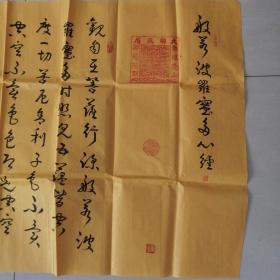 般若波羅蜜多心經
觀自在菩薩行深般若波
羅蜜多時照見五蘊皆空
度一切苦厄舍利子色不異
空空不異色色即是空